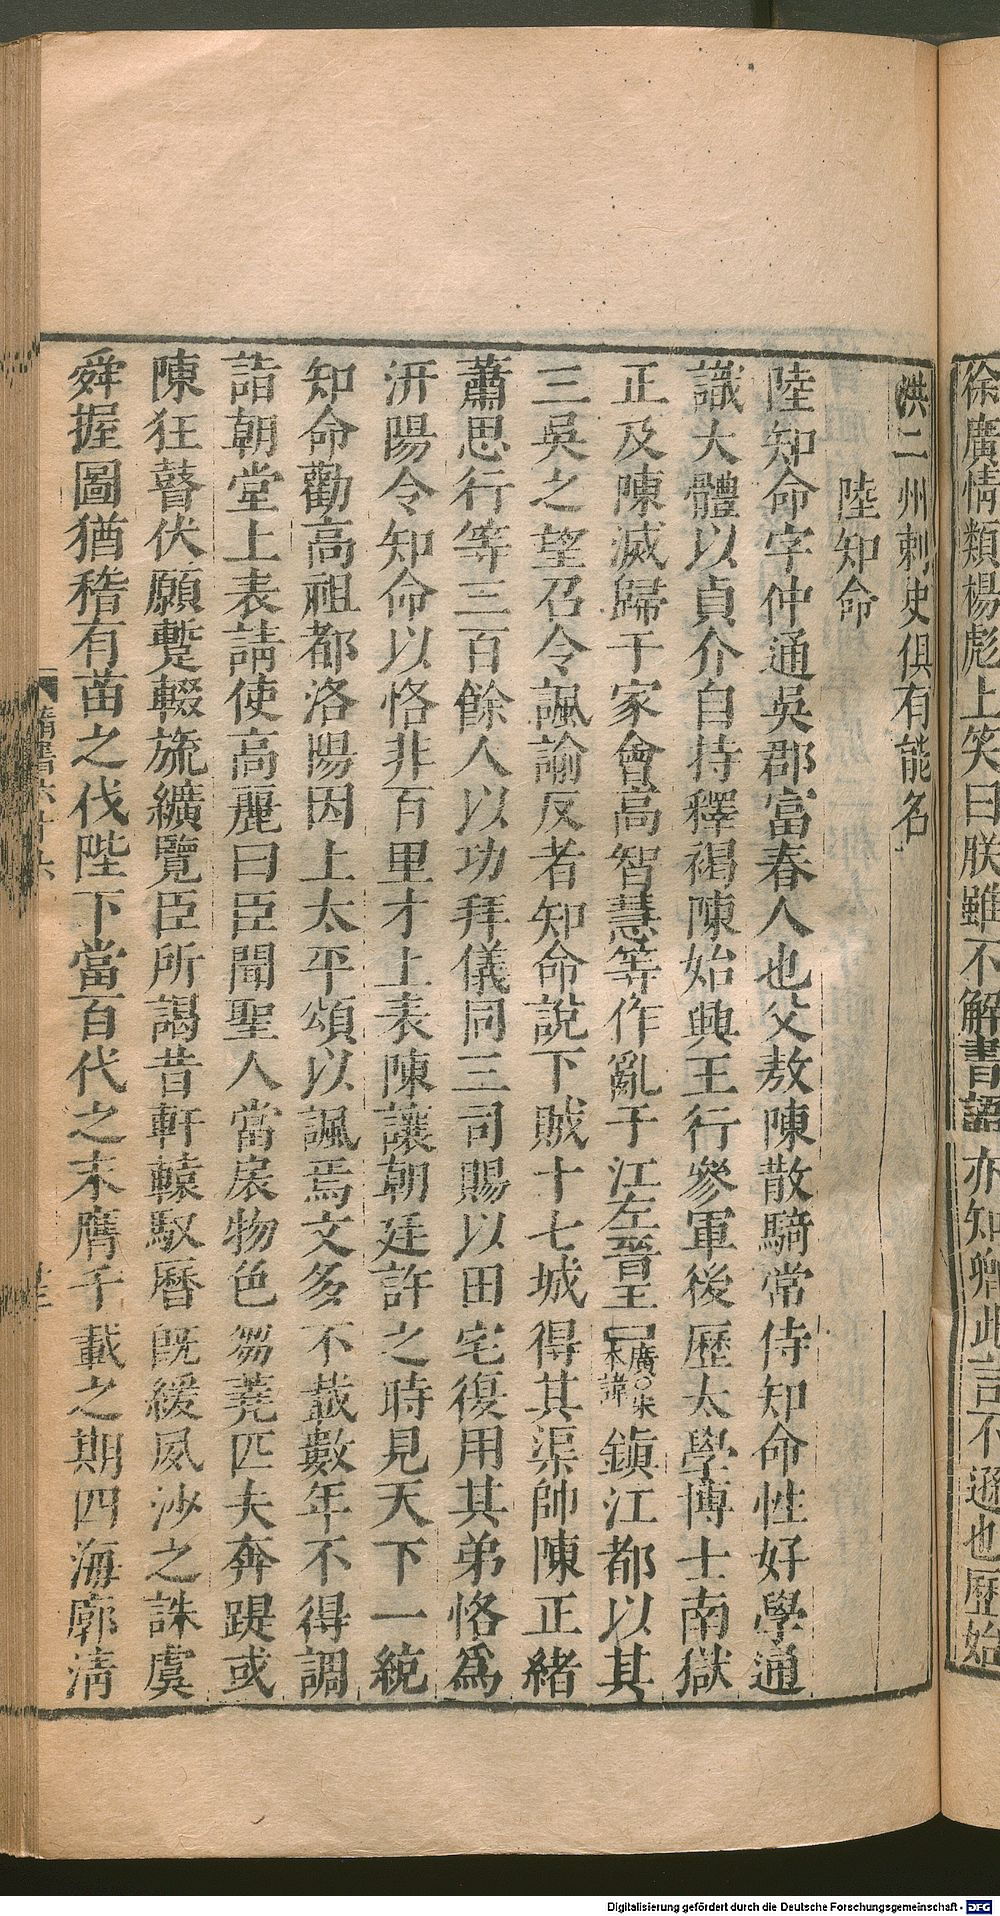 徐廣情類楊彪上笑曰朕雖不解書語亦知卿此言不遜也歷始
洪二州刺史俱有能名
陸知命
陸知命字仲通吳郡富春人也父敖陳散騎常侍知命性好學通
識大體以貞介自持釋褐陳始興王行參軍後歷太學博士南獄
正及陳滅歸于家會高智慧等作亂于江左晉王曰廣○宋本諱鎭江都以其
三吳之望召令諷諭反者知命說下賊十七城得其渠帥陳正緒
蕭思行等三百餘人以功拜儀同三司賜以田宅復用其弟恪爲
汧陽令知命以恪非百里才上表陳讓朝廷許之時見天下一統
知命勸高祖都洛陽因上太平頌以諷焉文多不載數年不得調
詣朝堂上表請使高麗曰臣聞聖人當扆物色芻蕘匹夫奔踶或
陳狂瞽伏願蹔輟旒纊覽臣所謁昔軒轅馭曆旣緩夙沙之誅虞
舜握圖猶稽有苗之伐陛下當百代之末膺千載之期四海廓淸
隋書六十六
Digitalisierung gefördert durch die Deutsche Forschungsgemeinschaft - DFG